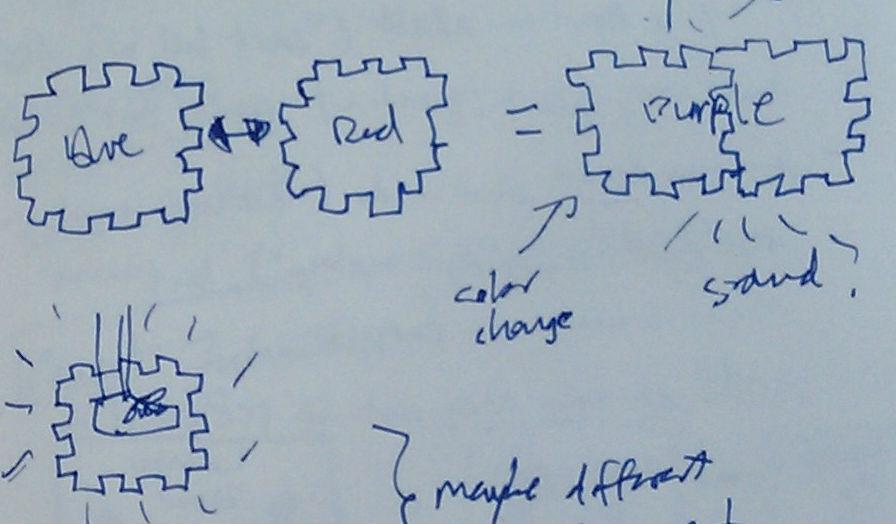 Blue
Red
=
Purple
color
change
sound?
maybe different